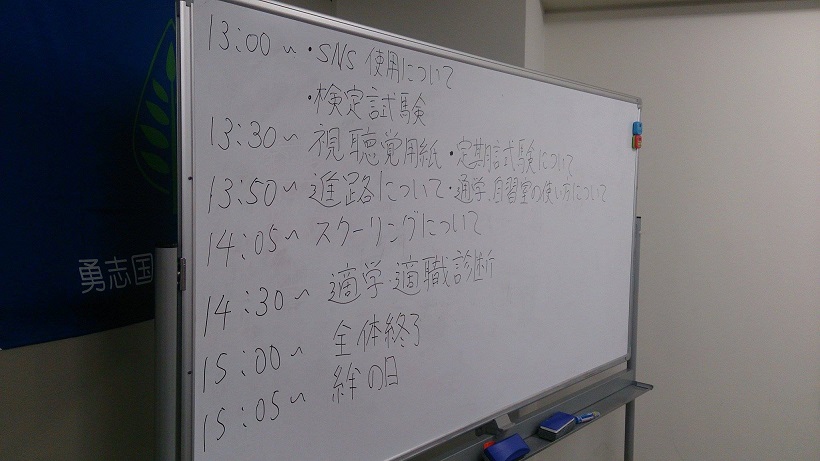 13:00～・SNS 使用について
・検定試験
13:30～ 視聴覚用紙・定期試験について
13:50～ 進路について・通学、自習室の使い方について
14:05～ スクーリングについて
14:30～ 適学・適職診断
15:00～ 全体終了
15:05～ 絆の日
勇志国